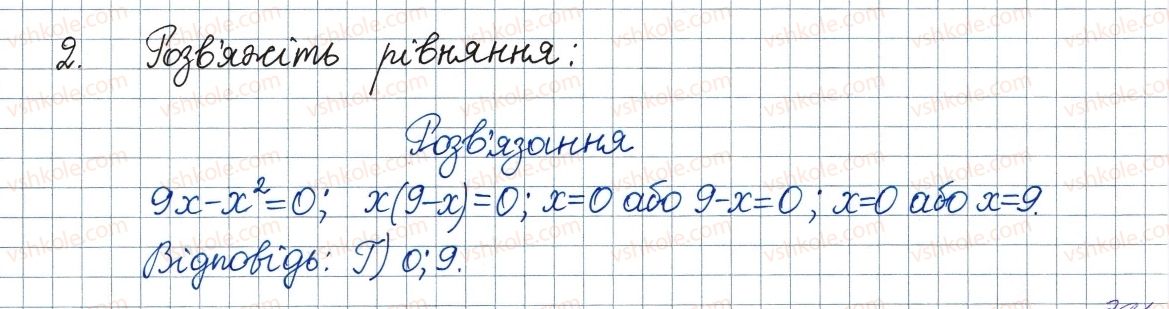 2. Розв'яжіть рівняння:
Розв'язання
9x-x²=0; x(9-x)=0; x=0 або 9-x=0; x=0 або x=9.
Відповідь: Г) 0; 9.